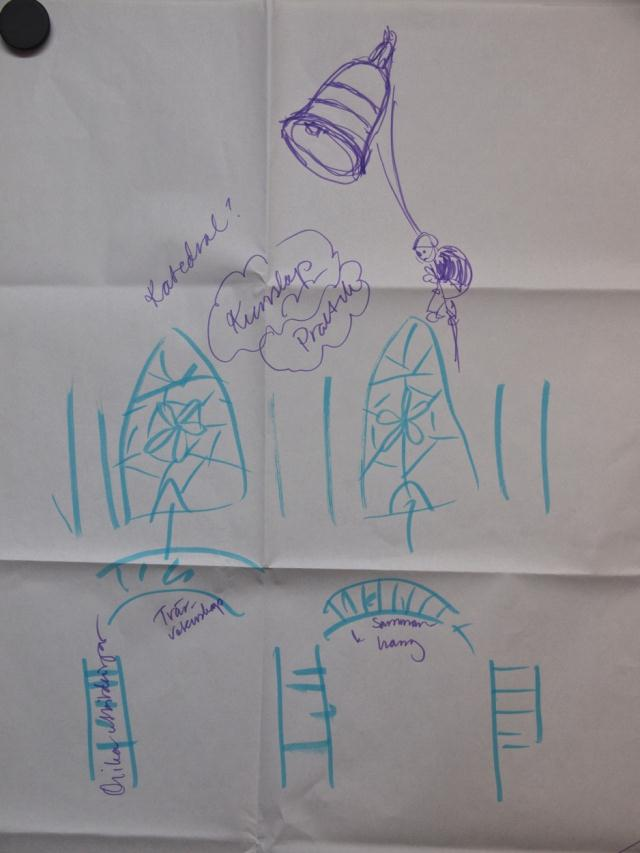 Katedral?
Kunskap
Praktik
Tvär-
vetenskap
Samman
hang
Olika